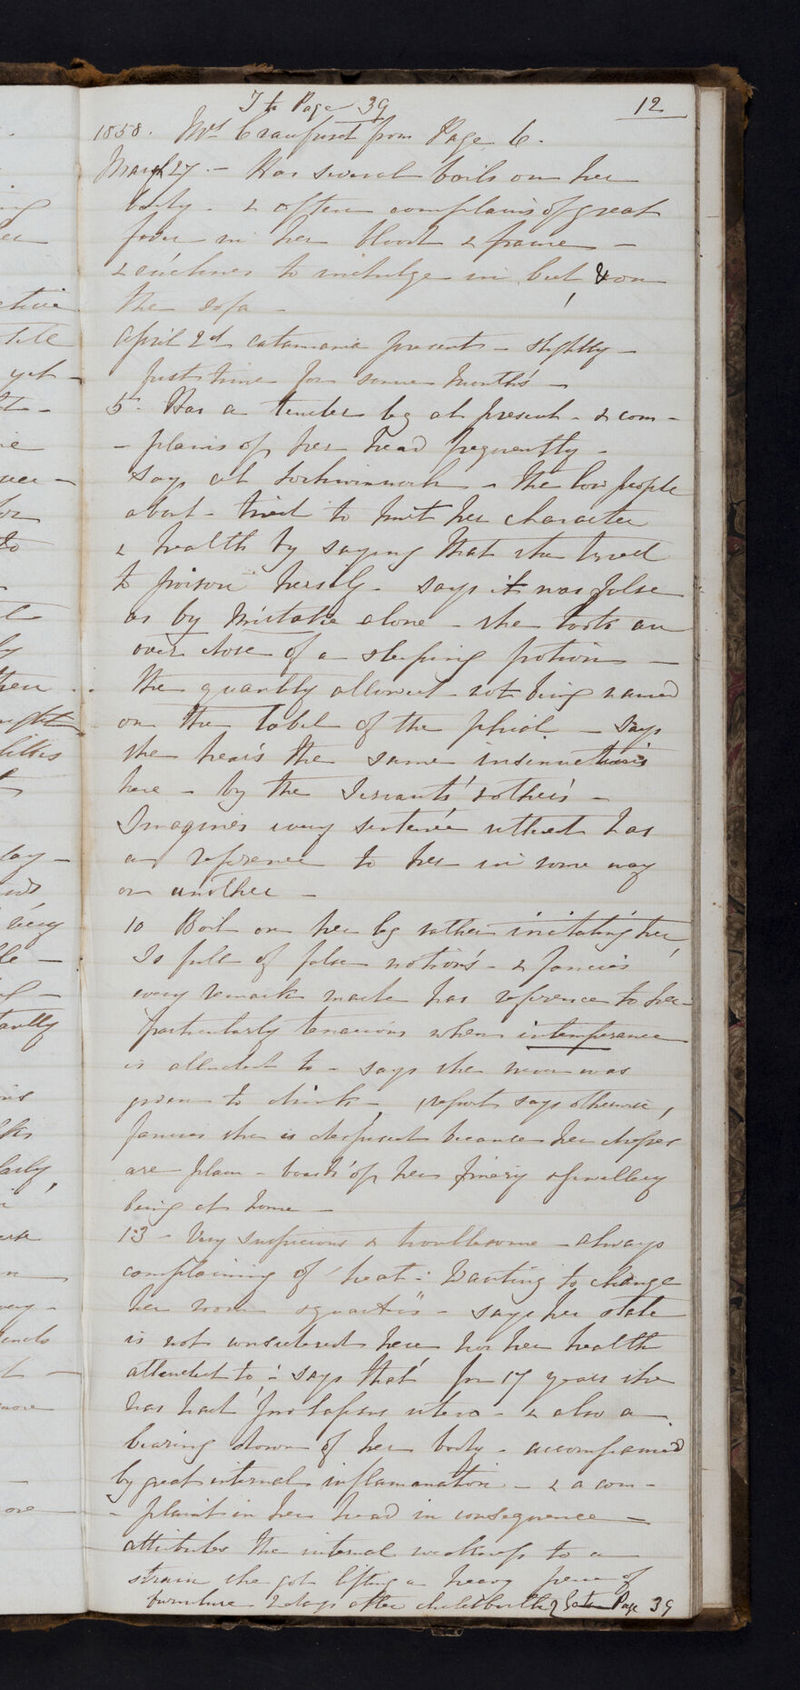 To Page 39
12
1858. Mrs Craufurd from Page 6.
March 27. - Has several boils on her
body - & often complains of great
fever in her blood & frame -
& inclines to indulge in bed, & on
the sofa -
April 2d catamania present - slightly -
first time for some months -
5. Has a tender leg at present - & com-
- plains of her head frequently -
says at Lochwinnoch - the low people
about - tried to hurt her character
& health by saying that she tried
to poison herself - says it was false
as by mistake alone - she took an
over dose of a sleeping potion -
the quantity allowed not being named
on the label of the phial - says
she hears the same insinuations
here - by the Servants & others -
Imagines every sentence uttered has
a reference to her in some way
or another -
10 Boil on her leg rather irritating her,
Is full of false notions - & fancies
every remark made has reference to her -
particularly tenacious when intemperance
is alluded to - says she never was
given to drink, report says otherwise,
fancies she is despised because her dresses
are plain - boasts of her finery & jewellery
being at home -
13 - Very suspicious & troublesome - always
complaining of heat - Wanting to change
her room & quarters" - says her state
is not considered here nor her health
attended to - says that for 17 years she
has had prolapsus utero - & also a
bearing down of her body - accompanied
by great internal inflamanation - & a com-
- plaint in her head in consequence -
attributes the internal weakness to a
strain she got lifting a heavy piece of
furniture 2 days after childbirth Page 39